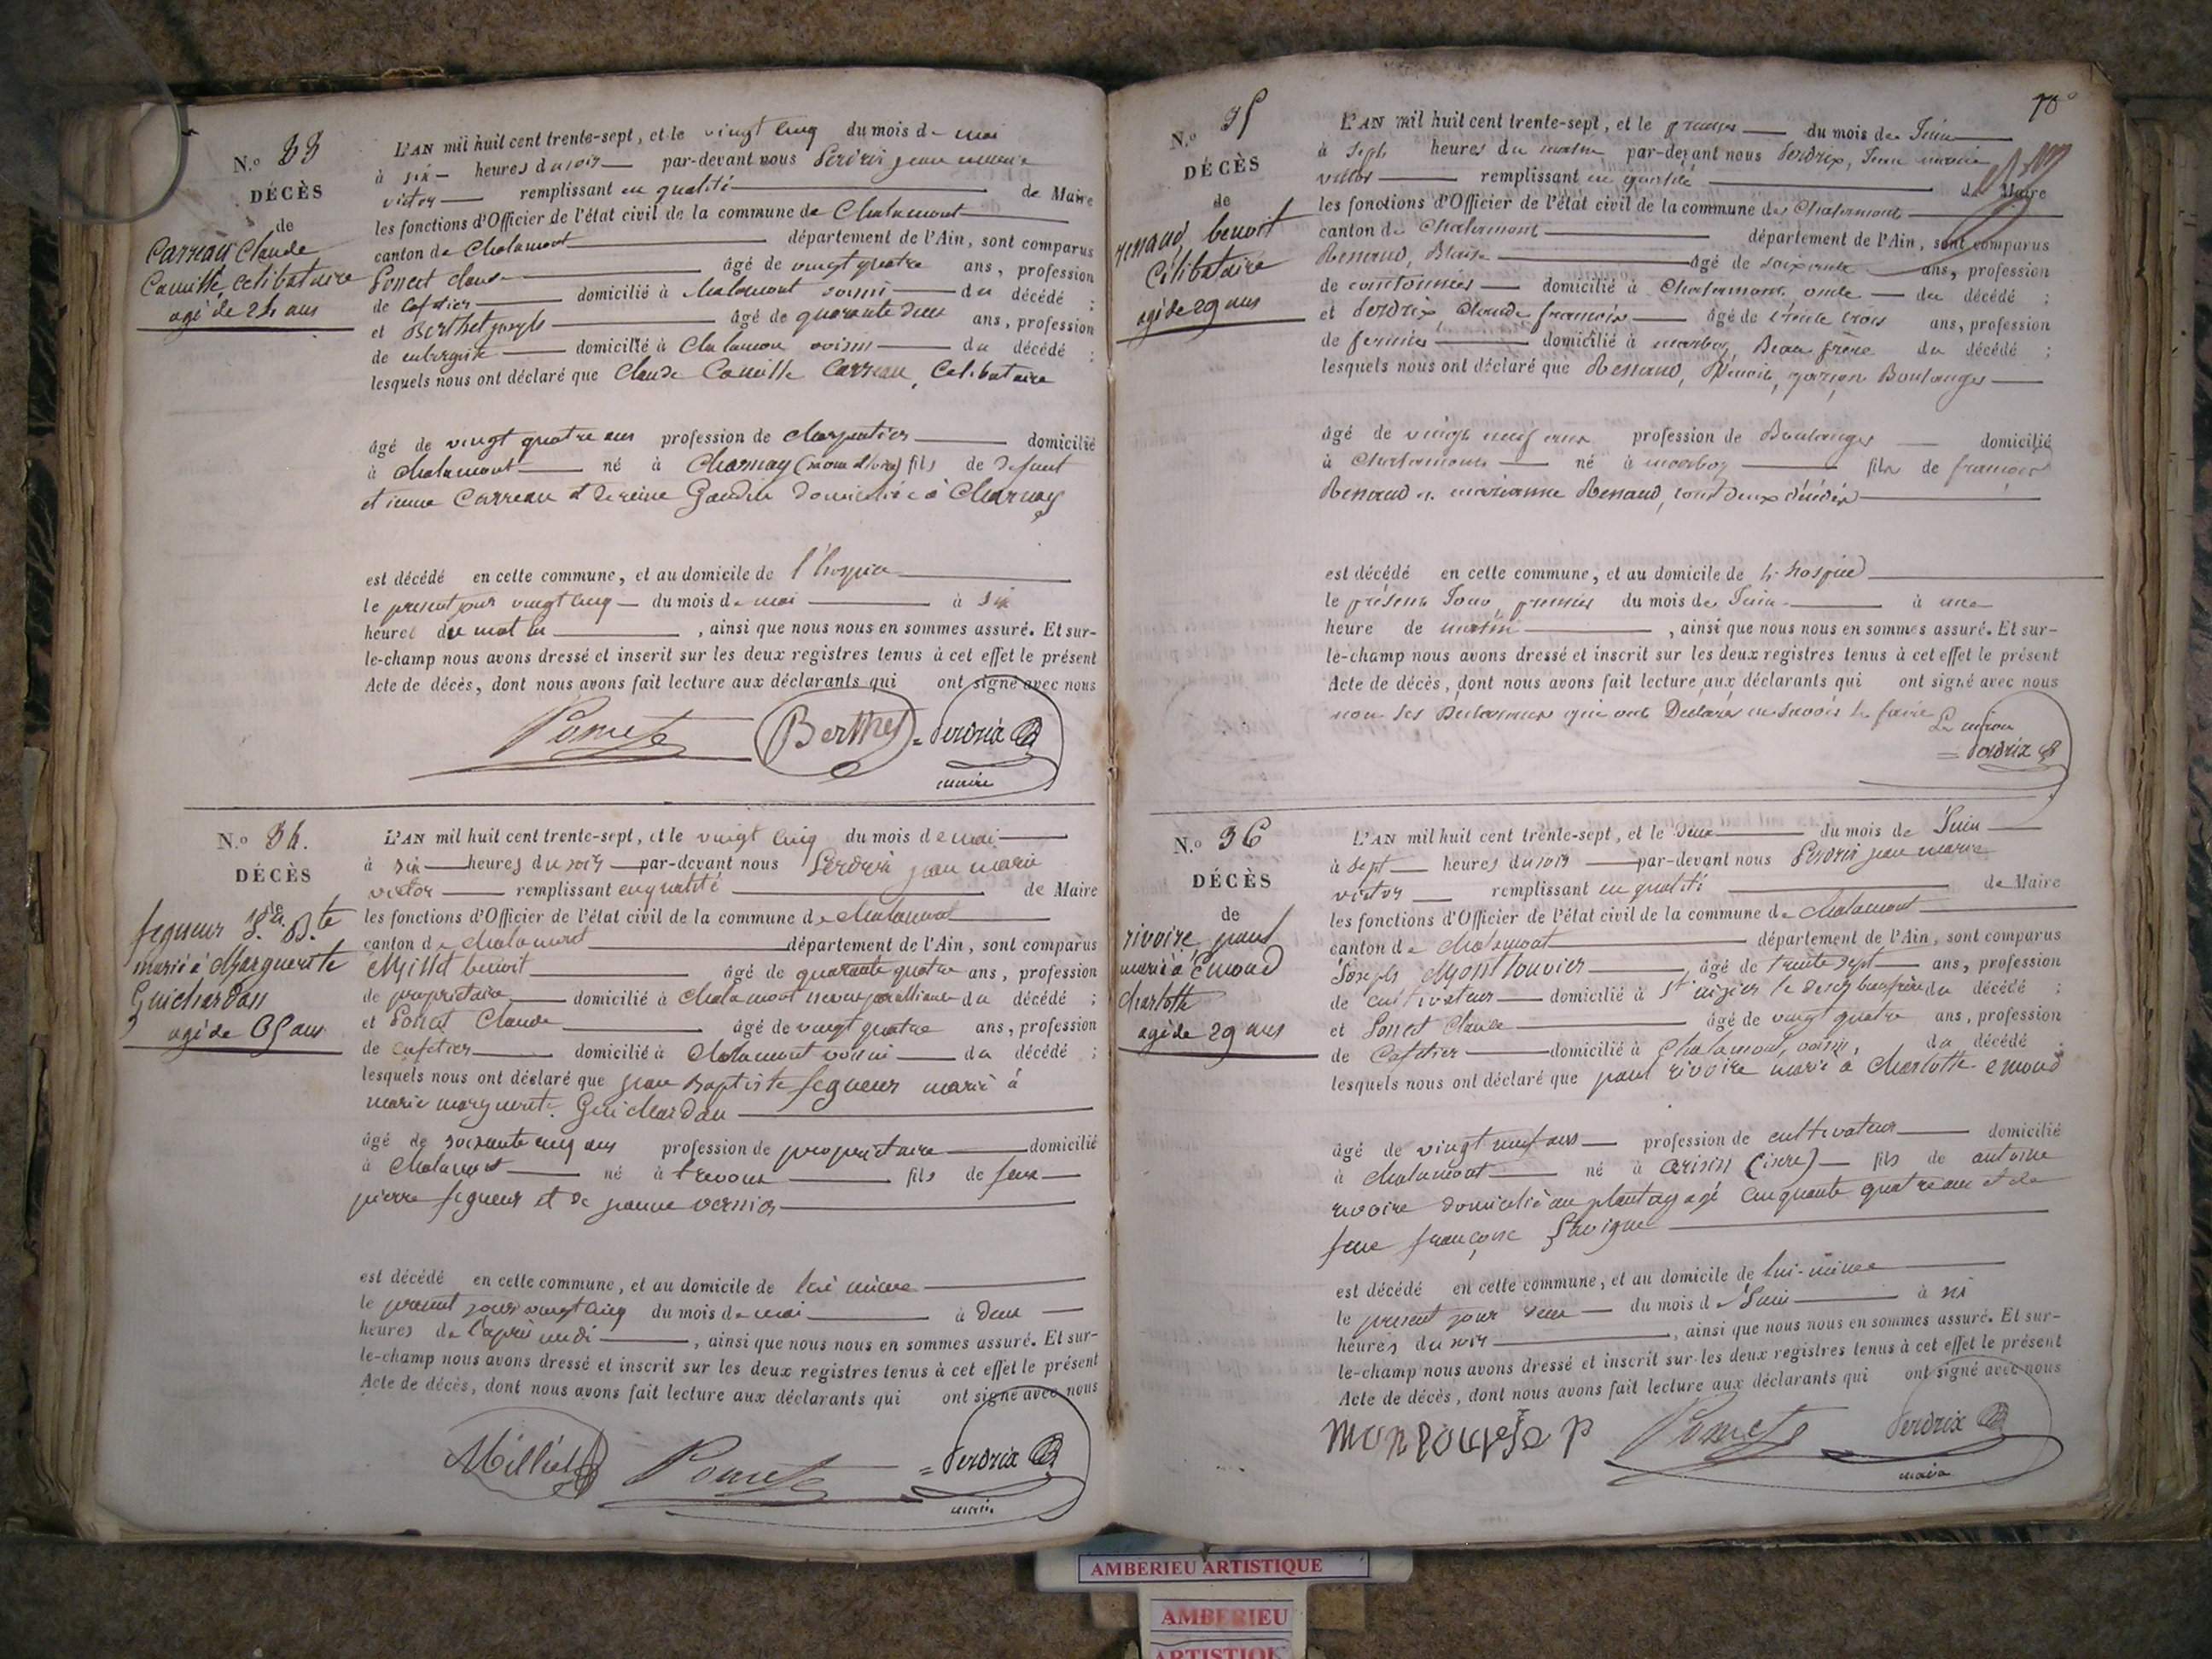 N.º 33
DÉCÈS
de
Carreau Claude
Camille, celibataire
agé de 24 ans
L'AN mil huit cent trente-sept, et le vingt cinq du mois de mai
à six heures du soir par-devant nous Perdrix jean marie
victor remplissant en qualité de Maire
les fonctions d'Officier de l'état civil de la commune de Chalamont
canton de Chalamont département de l'Ain, sont comparus
Ponest Claude âgé de vingt quatre ans, profession
de cafetier domicilié à chalamont voisin du décédé ;
et Berthet joseph âgé de quarante deux ans, profession
de domicilié à Chalamon voisin du décédé ;
lesquels nous ont déclaré que Claude Camille Carreau, Celibataire
âgé de vingt quatre ans profession de charpentier domicilié
à chalamont né à Charnay (saone et loire) fils de defunt
Carreau et de reine Gaudin domiciliée à Charnay
est décédé en cette commune, et au domicile de l'hospice
le present jour vingt cinq du mois de mai à six
heures du matin , ainsi que nous nous en sommes assuré. Et sur-
le-champ nous avons dressé et inscrit sur les deux registres tenus à cet effet le présent
Acte de décès, dont nous avons fait lecture aux déclarants qui ont signé avec nous
Berthet = Perdrix
maire
N.º 34.
DÉCÈS
de
fequeur J.n B.te
marié à Marguerite
Guichardan
agé de 65 ans
L'AN mil huit cent trente-sept, et le vingt cinq du mois de mai
à six heures du soir par-devant nous Perdrix jean marie
victor remplissant en qualité de Maire
les fonctions d'Officier de l'état civil de la commune de chalamont
canton de chalamont département de l'Ain, sont comparus
Millet benoit âgé de quarante quatre ans, profession
de propriétaire domicilié à chalamont neveu par alliance du décédé ;
et Ponest Claude âgé de vingt quatre ans, profession
de cafetier domicilié à Chalamont voisin du décédé ;
lesquels nous ont déclaré que jean Baptiste fequeur marié à
marie marguerite Guichardan
âgé de soixante cinq ans profession de propriétaire domicilié
à Chalamont né à trevoux fils de feux
pierre fequeur et de jeanne vernier
est décédé en cette commune, et au domicile de lui même
le present jour vingt cinq du mois de mai à deux
heures de l'après midi , ainsi que nous nous en sommes assuré. Et sur-
le-champ nous avons dressé et inscrit sur les deux registres tenus à cet effet le présent
Acte de décès, dont nous avons fait lecture aux déclarants qui ont signé avec nous
Milliet = Perdrix
maire
78
N.º 35
DÉCÈS
de
renaud, benoit
Célibataire
agé de 29 ans
L'AN mil huit cent trente-sept, et le premier du mois de Juin
à sept heures du matin par-devant nous Perdrix, Jean marie
victor remplissant en qualité de Maire
les fonctions d'Officier de l'état civil de la commune de Chalamont
canton de Chalamont département de l'Ain, sont comparus
Renaud, Blaise âgé de soixante ans, profession
de cantonnier domicilié à Chalamont, oncle du décédé ;
et Perdrix Claude françois âgé de trente trois ans, profession
de fermier domicilié à marboz, Beau frère du décédé ;
lesquels nous ont déclaré que Renaud, Benoit, garçon Boulanger
âgé de vingt neuf ans profession de Boulanger domicilié
à Chalamont né à marboz fils de françois
Renaud et marianne Renaud, tout deux décédés
est décédé en cette commune, et au domicile de L'hospice
le présent Jour premier du mois de Juin à une
heure de matin , ainsi que nous nous en sommes assuré. Et sur-
le-champ nous avons dressé et inscrit sur les deux registres tenus à cet effet le présent
Acte de décès, dont nous avons fait lecture aux déclarants qui ont signé avec nous
non les Déclarants qui ont Declaré ne savoir le faire
= Perdrix
N.º 36
DÉCÈS
de
rivoire paul
marié à Emond
Charlotte
agé de 29 ans
L'AN mil huit cent trente-sept, et le deux du mois de Juin
à sept heures du soir par-devant nous Perdrix jean marie
victor remplissant en qualité de Maire
les fonctions d'Officier de l'état civil de la commune de chalamont
canton de chalamont département de l'Ain, sont comparus
Joseph Montlouvier, âgé de trente sept ans, profession
de cultivateur domicilié à St nizier le desert beaufrère du décédé ;
et Ponest Claude âgé de vingt quatre ans, profession
de Cafetier domicilié à Chalamont, voisin, du décédé ;
lesquels nous ont déclaré que paul rivoire marié à Charlotte emond
âgé de vingt neuf ans profession de cultivateur domicilié
à chalamont né à (isere) fils de antoine
rivoire domicilié au plantay agé cinquante quatre ans et de
feue françoise
est décédé en cette commune, et au domicile de lui-même
le present jour deux du mois de Juin à six
heures du soir , ainsi que nous nous en sommes assuré. Et sur-
le-champ nous avons dressé et inscrit sur les deux registres tenus à cet effet le présent
Acte de décès, dont nous avons fait lecture aux déclarants qui ont signé avec nous
Perdrix
maire
AMBERIEU ARTISTIQUE
AMBERIEU
ARTISTIQUE